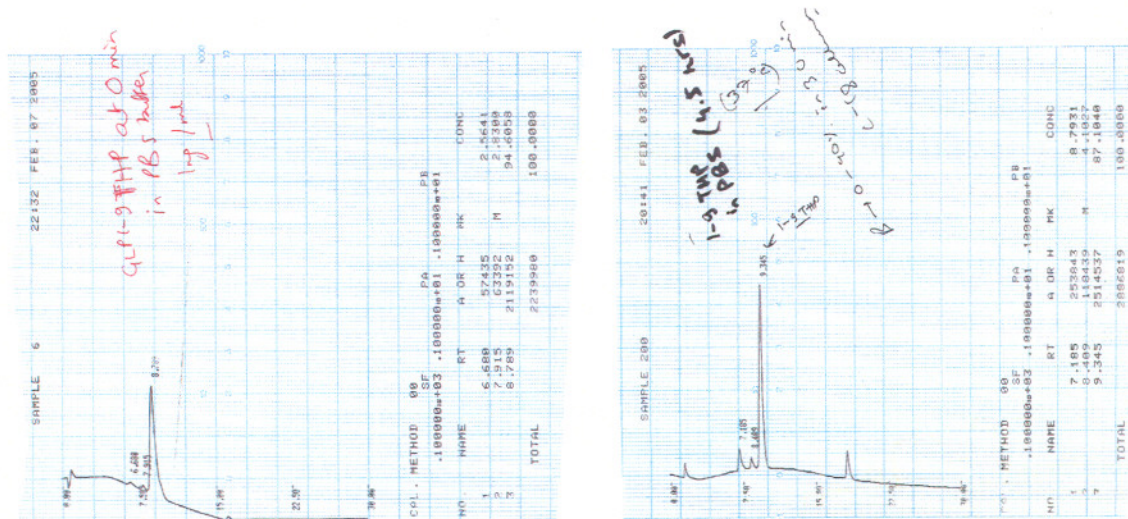 SAMPLE 6 22:32 FEB. 07 2005
at 0 min
in PBS buffer
1mg/ml
1000
10
500
0.00
6.680
7.50
7.915
8.789
15.00
22.50
30.00
CAL. METHOD 00
SF PA PB
.100000e+03 .100000e+01 .100000e+01
NO. NAME RT A OR H MK CONC
1 6.680 57435 2.5641
2 7.915 63392 M 2.8300
3 8.789 2119152 94.6058
TOTAL 2239980 100.0000
SAMPLE 200 20:41 FEB 03 2005
1-9 THP (4.5 hrs)
in PBS
1-9 THP
1000
10
500
0.00
7.185
7.50
8.409
9.345
15.00
22.50
30.00
METHOD 00
SF PA PB
.100000e+03 .100000e+01 .100000e+01
NO NAME RT A OR H MK CONC
1 7.185 253843 8.7931
2 8.409 118439 M 4.1027
3 9.345 2514537 87.1040
TOTAL 2886819 100.0000